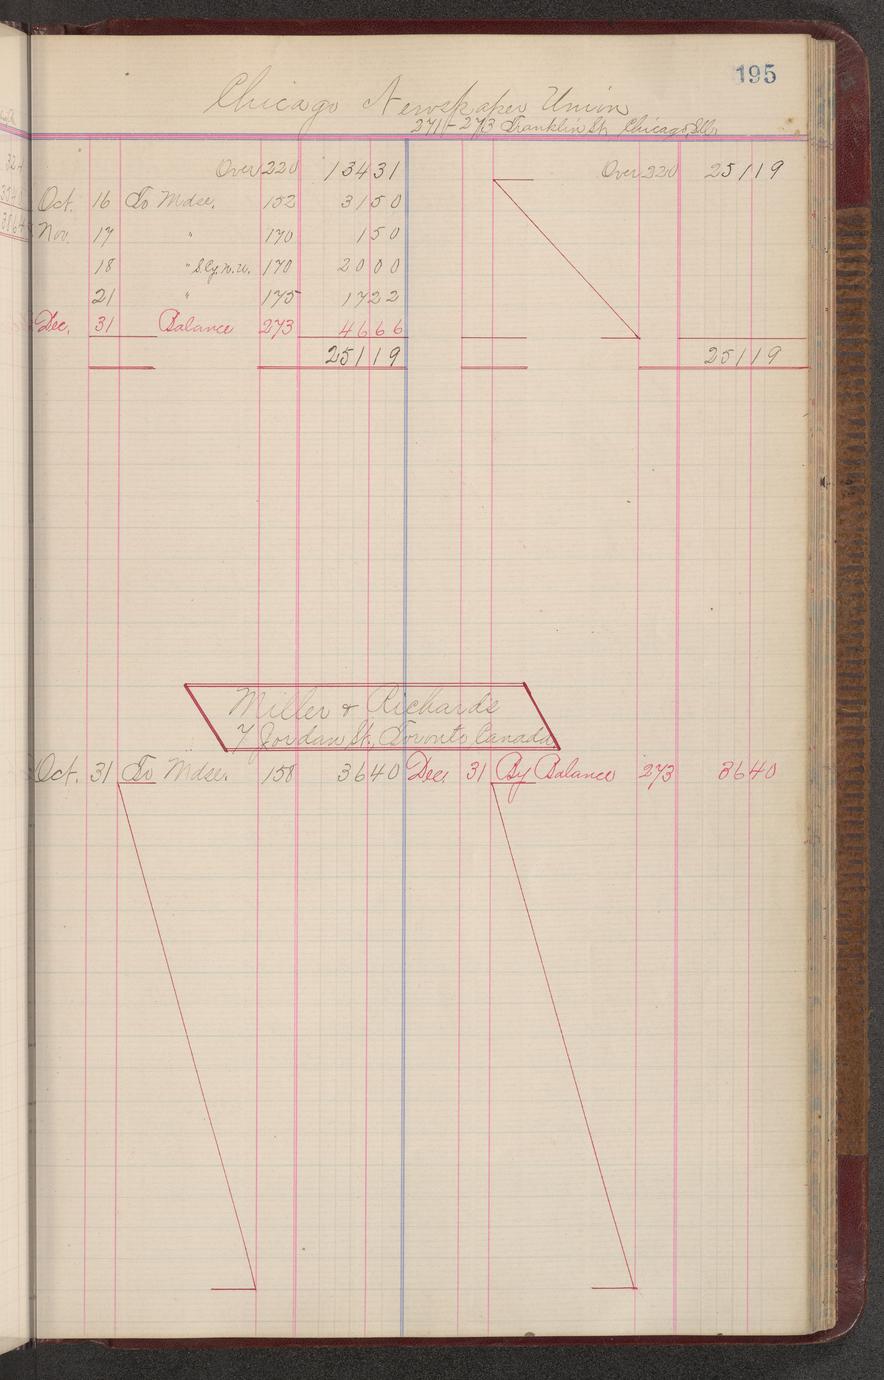 195
Chicago Newspaper Union
271-273 Franklin St. Chicago, Ills.
Over 220 134 31 Over 220 251 19
Oct. 16 To Mdse. 152 31 50
Nov. 17 " 170 1 50
18 " 170 20 00
21 " 175 17 22
Dec. 31 Balance 273 46 66
251 19 251 19
Miller & Richards
7 Jordan St., Toronto Canada
Oct. 31 To Mdse. 158 36 40 Dec. 31 By Balance 273 36 40